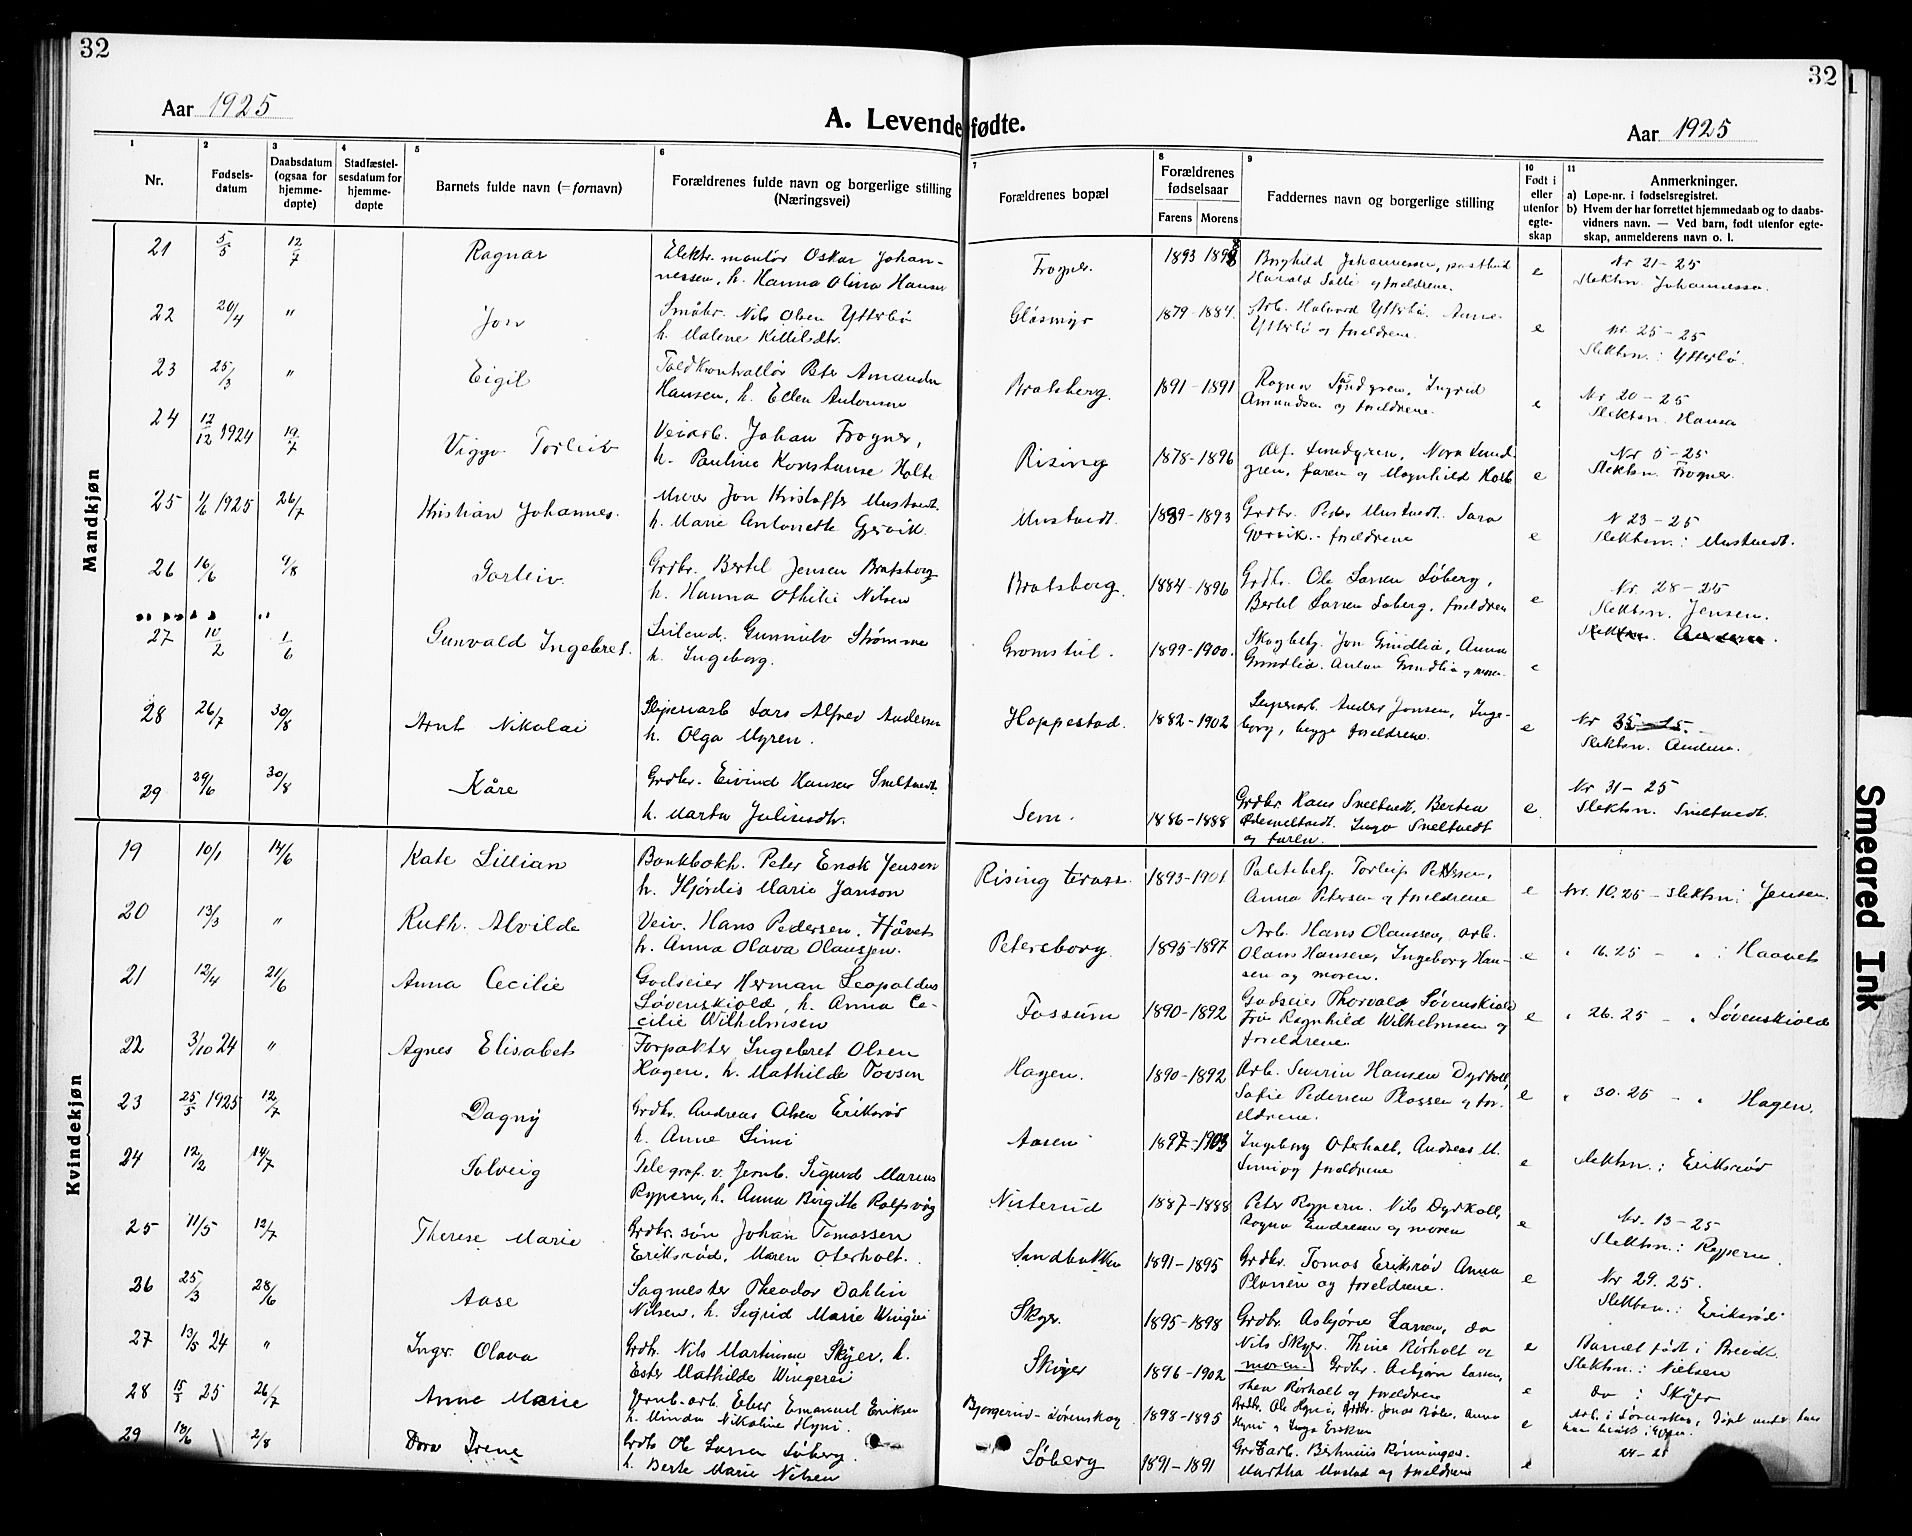 32
32
Aar 1925
A. Levendefødte.
Aar 1925
1
2
3
4
5
6
7
8
9
10
11
Nr.
Fødsels-
datum
Daabsdatum
(ogsaa for
hjemme-
døpte)
Stadfæstel-
sesdatum for
hjemme-
døpte
Barnets fulde navn (= fornavn)
Forældrenes fulde navn og borgerlige stilling
(Næringsvei)
Forældrenes bopæl
Forældrenes
fødselsaar
Farens Morens
Faddernes navn og borgerlige stilling
Født i
eller
utenfor
egte-
skap
Anmerkninger.
a) Løpe-nr. i fødselsregistret.
b) Hvem der har forrettet hjemmedaab og to daabs-
vidners navn. — Ved barn, født utenfor egte-
skap, anmelderens navn o. l.
Mandkjøn
21 5/5 12/7 Ragnar
Elektr. montør Oskar Johan-
nessen, h. Hanna Olina Hansen
Frogner. 1893
Borghild Johannessen,
Harald og foreldrene.
e
Nr 21-25
Slektsn. Johannessen.
22 20/4 " Jon
Småbr. Nils Olsen Ytterbø
h. Malene Kittilsdtr.
Glåsmyr 1879-1884.
Arb. Halvord Ytterbø. Anne
Ytterbø og foreldrene.
e
Nr. 25-25
Slektsn.: Ytterbø.
23 25/3 " Eigil
Toldkontrollør Peter Amandus
Hansen, h. Ellen Antonsen
Bratsberg. 1891-1891
Ragna Sundgren, Ingrid
Amundsen og foreldrene.
e
Nr 20-25
Slektsn. Hansen
24 12/12 1924 19/7 Viggo Torleiv
Veiarb. Johan Frogner,
h. Pauline Konstanse Holte
Rising 1878-1896
Alf. Lundgren, Nora Lund-
gren, faren og Magnhild Holte
e
Nr 5-25
Slektsn. Frogner.
25 1/6 1925 26/7 Kristian Johannes.
Murer Jon Kristoffer Mustvedt.
h. Marie Antonette Gjervik.
Mustvedt. 1889-1893
Grdbr. Peder Mustvedt. Sara
Gjervik. - foreldrene
e
N 23-25
Slektsn.: Mustvedt.
26 16/6 9/8 Torleiv.
Grdbr. Bertel Jensen Bratsberg
h. Hanna Othilie Nilsen
Bratsberg. 1884-1896
Grdbr. Ole Larsen Søberg,
Bertel Larsen Søberg, foreldrene
e
Nr. 28-25
Slektsn. Jensen.
27 10/2 1/6 Gunvald Ingebret.
Leilend. Gunnulv Strømme
h. Ingeborg.
Gromstul. 1899-1900.
Skogbetj. Jon Grindlia, Anna
Grindlia. Anton Grindlia og moren.
e
28 26/7 30/8 Arnt Nikolai
Sliperiarb Lars Alfred Andersen
h. Olga Myren.
Hoppestad. 1882-1902
Sliperiarb. Anders Jonsen, Inge-
borg, begge foreldrene.
e
Nr 35-25.
Slektsn. Andersen.
29 29/6 30/8 Kåre
Grdbr. Eivind Hansen Sneltvedt.
h. Marta Juliusdtr.
Sem. 1886-1888
Grdbr. Hans Sneltvedt, Bertea
Sneltvedt. Inga Sneltvedt
og faren.
e.
Nr 31-25
Slektsn. Sneltvedt.
Kvindekjøn
19 10/1 14/6 Kate Lillian
Bankbokh. Peter Enok Jensen
h. Hjørdis Marie Janson
Rising terass. 1893-1901
Politibetj. Torleif Pettersen,
Anna Petersen og foreldrene
e
Nr. 10.25 - Slektsn: Jensen.
20 13/3 " Ruth. Alvilde
Veiv. Hans Pedersen. Håvet
h. Anna Olava Olaussen.
Petersborg. 1895-1897
Arb. Hans Olaussen, arb.
Olaus Hansen, Ingeborg Han-
sen og moren.
e
" 16.25 - " : Haavet
21 12/4 21/6 Anna Cecilie
Godseier Herman Leopoldus
Løvenskiold, h. Anna Ce-
cilie Wilhelmsen
Fossum 1890-1892
Godseier Thorvald Løvenskiold
Frü Ragnhild Wilhelmsen og
foreldrene.
e
" 26.25 - " Løvenskiold
22 3/10 24 " Agnes Elisabet
Forpakter Ingebret Olsen
Hagen, h. Mathilde Tovsen
Hagen. 1890-1892
Arb. Severin Hansen Dyrkoll,
Sofie Pedersen Plassen og for-
eldrene.
e
" 30.25 - " Hagen.
23 25/5 1925 12/7 Dagny
Grdbr. Andreas Olsen Eriksrød
h. Anne Limi
Aasen 1897-1903
Ingeborg Oterholt, Andreas M.
Limi og foreldrene
e
Slektsn.: Eriksrød
24 12/2 14/7 Solveig
Telegraf. v. Jernb. Sigurd Marius
Rypern, h. Anna Birgitte Rolfsvåg
Nisterud 1887-1888
Peter Rypern. Nils Dyrkoll,
Ragna Endresen og moren
e
Nr. 13-25
Slektsn.: Rypern.
25 11/5 12/7 Therese Marie
Grdbr. søn Johan Tomassen
Eriksrød, Maren Oterholt.
Sandbakken 1891-1895
Grdbr. Tomas Eriksrød Anna
Plassen og foreldrene.
e
Nr 29.25.
Slektsn.: Eriksrød
26 25/3 28/6 Aase
Sagmester Theodor Dahlin
Nilsen, h. Sigrid Marie
Skyer. 1895-1898
Grdbr. Asbjørn Larsen, do
Nils Skyer. Thine Rørholt og
moren.
e
Barnet født i Brevik.
Slektsn.: Nielsen
27 13/5 24 " Inger. Olava
Grdbr. Nils Martinsen Skyer, h.
Ester Mathilde Wingerei
Skøyer 1896-1902
Grdbr. Asbjørn Larsen,
Thea Rørholt og foreldrene
e
do : Skøyer
28 15/5 25 26/7 Anne Marie
Jernb.-arb. Eber Emanuel Eriksen
h. Minda Nikoline Hyni.
Bjørgerud - Lørenskog 1898-1895
Grdbr. Ole Hyni, Grdbr. Jonas Bøle, Anna
Hyni og Inga Eriksen
e
Arb. i Lørenskog, døpt under
29 18/6 2/8 Dora Irene
Grdbr Ole Larsen Søberg,
h. Berte Marie Nilsen
Søberg 1891-1891
Berthinius Rønningen.
Martha Mustad og foreldrene
e
24-25
Smeared Ink